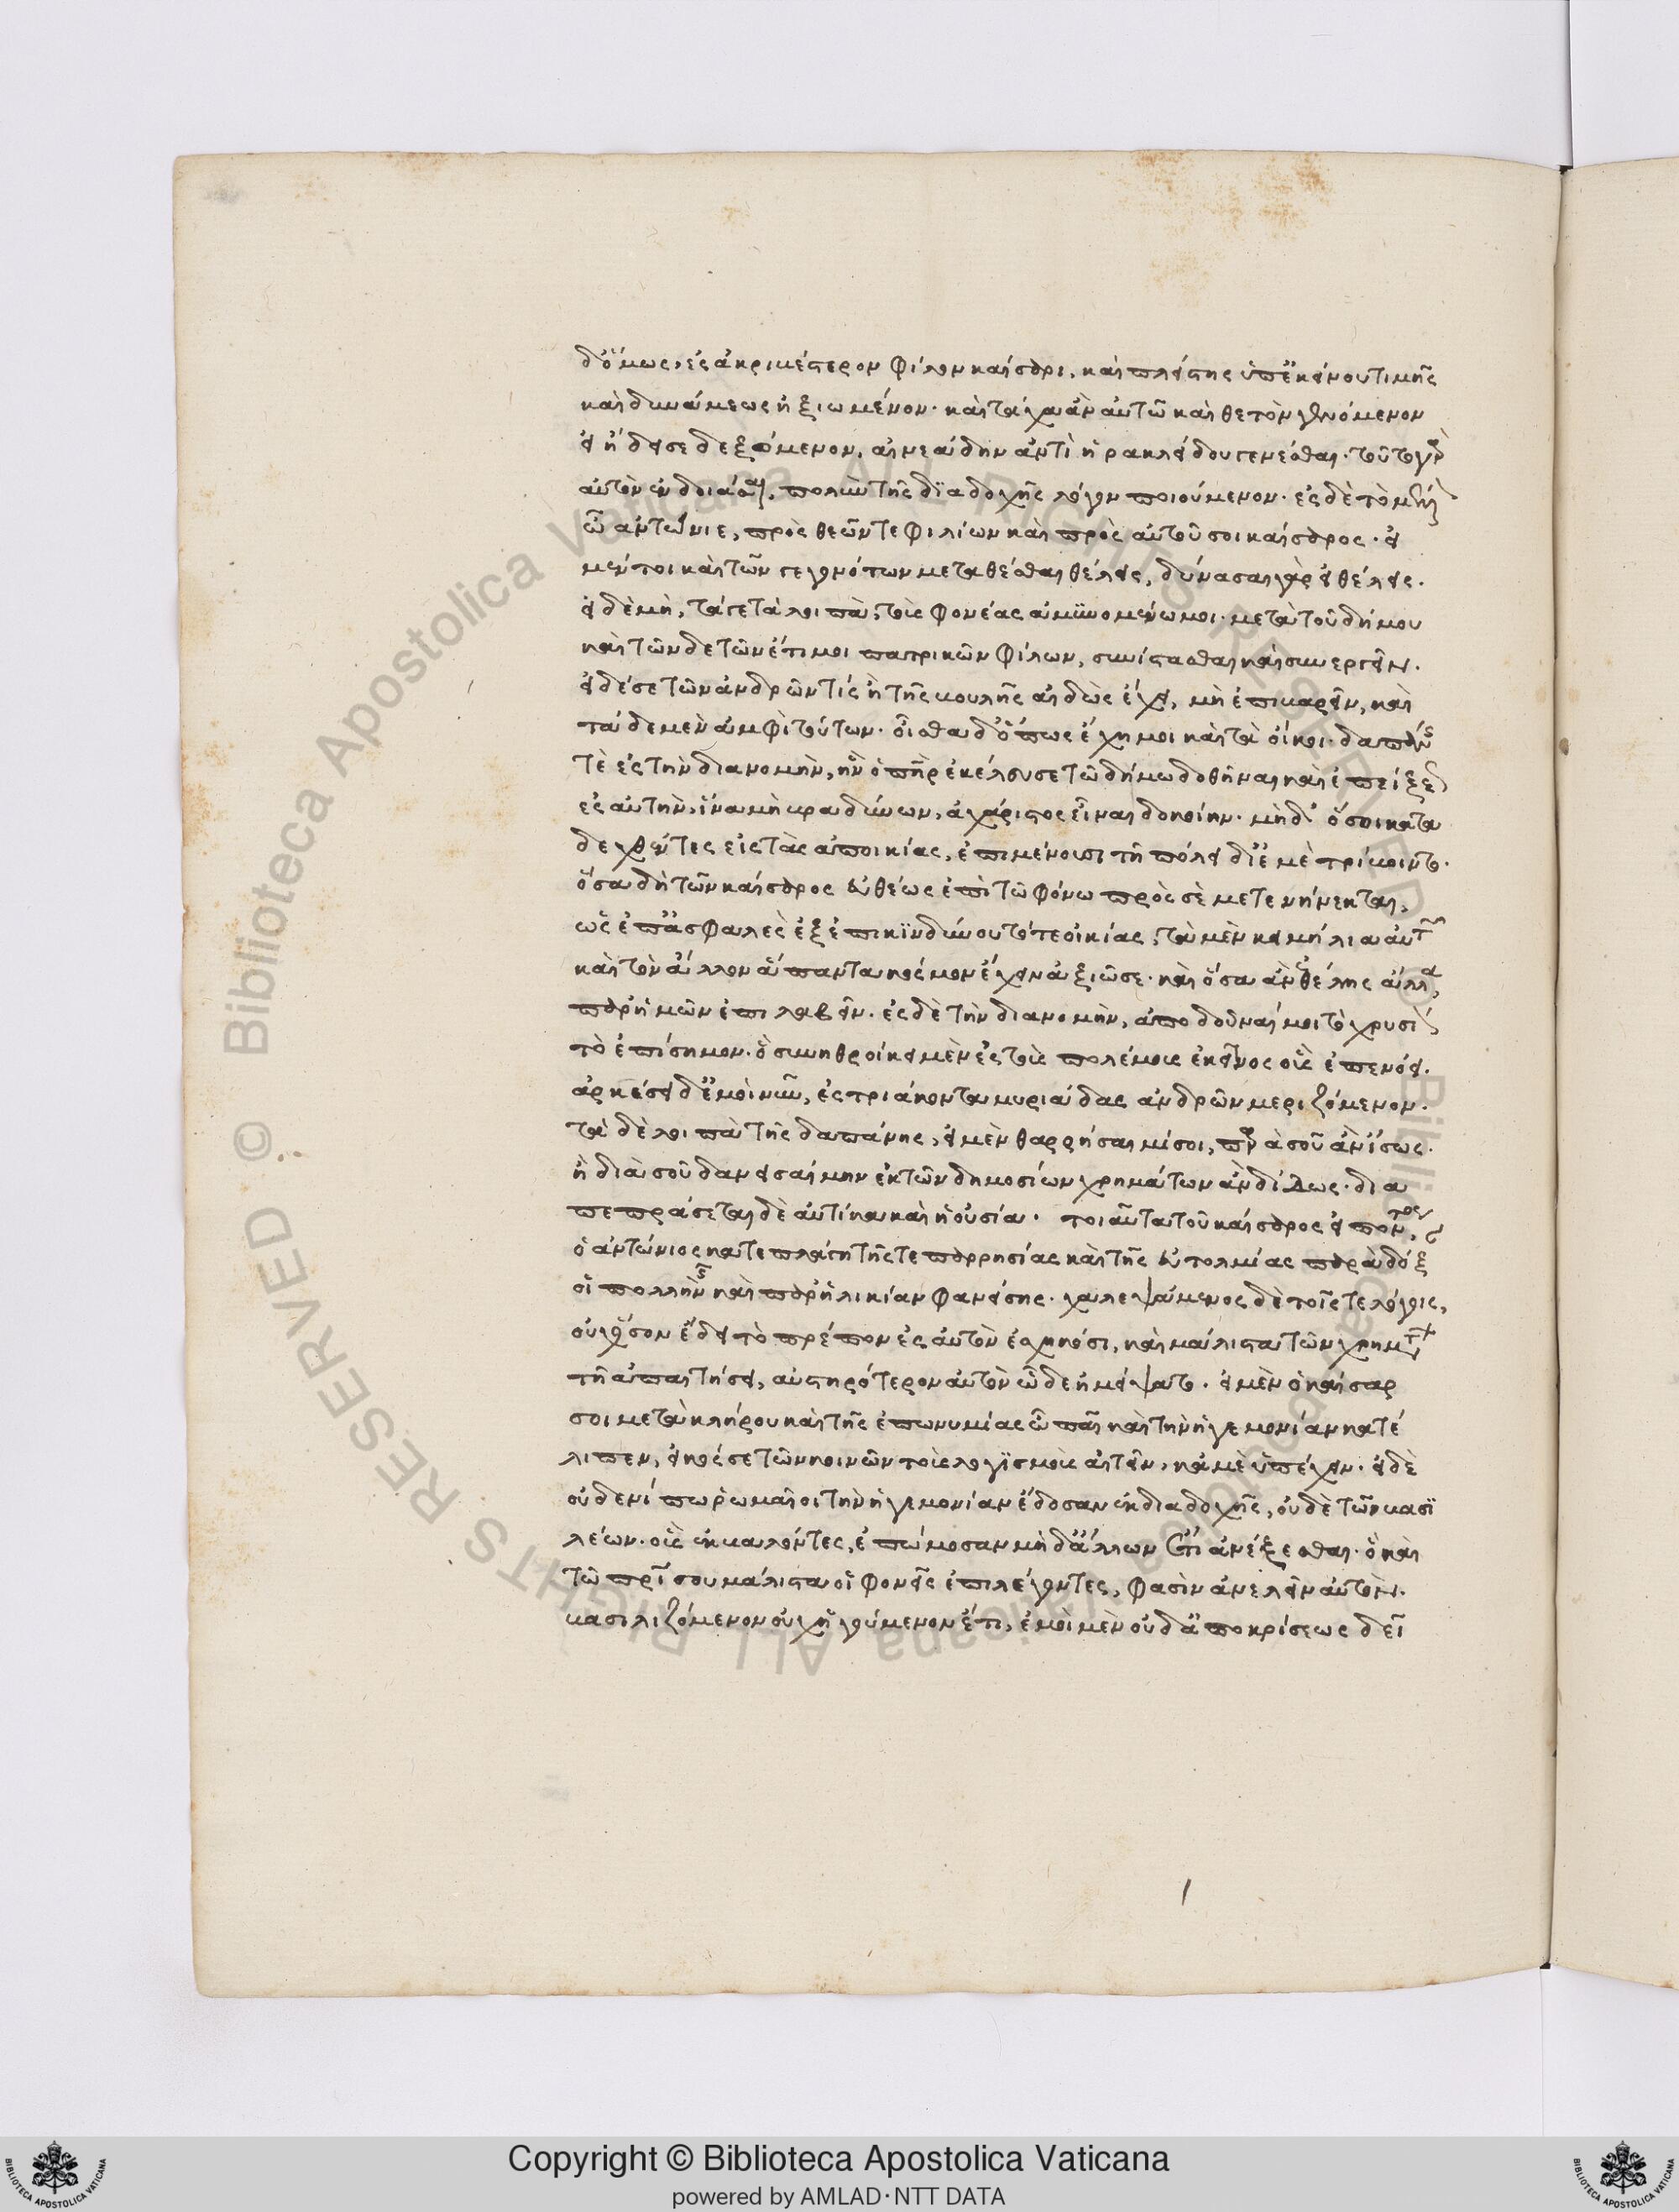 δ' ὅμως, ἐς ἀκριβέστερον φίλον καίσαρι, καὶ πλείστης ὑπ' ἐκείνου τιμῆς
καὶ δυνάμεως ἠξιωμένον· καὶ τάχα ἂν αὐτῶ καὶ θετὸν γενόμενον
εἰ ἤδει σε δεξόμενον, αἰνεάδην ἀντὶ ἡρακλείδου γενέσθαι· τοῦτο γὰρ
αὐτὸν ἐνδοιάσαι, πολὺν τῆς διαδοχῆς λόγον ποιούμενον· ἐς δὲ τὸ μέλλ
ὦ ἀντώνιε, πρὸς θεῶν τε φιλίων καὶ πρὸς αὐτοῦ σοι καίσαρος· εἰ
μέν τοι καὶ τῶν γεγονότων μεταθέσθαι θέλεις, δύνασαι γὰρ εἰ θέλεις·
εἰ δὲ μὴ, τά γε τὰ λοιπὰ, τοὺς φονέας ἀμυνομένω μοι· μετὰ τοῦ δήμου
καὶ τῶνδε τῶν ἔτι μοι πατρικῶν φίλων, συνίστασθαι καὶ συνεργεῖν·
εἰ δέ σε τῶν ἀνδρῶν τίς ἢ τῆς βουλῆς αἰδὼς ἔχει, μὴ ἐπιβαρεῖν, καὶ
τάδε μὲν ἀμφὶ τούτων· οἶσθα δ' ὅπως ἔχη μοι καὶ τὰ οἴκοι· δαπάνης
τὲ ἐς τὴν διανομὴν, ἣν ὁ πὴρ ἐκέλευσε τῶ δήμω δοθῆναι καὶ ἐπείξε
ἐς αὐτὴν, ἵνα μὴ βραδύνων, ἀχάριστος εἶναι δοκοίην· μὴδ' ὅσοι κατα
λεχθέντες εἰς τὰς ἀποικίας, ἐπιμένουσι τῆ πόλει δι' ἐμὲ τρίβοιντο·
ὅσα δὴ τῶν καίσαρος εὐθέως ἐπὶ τῶ φόνω πρὸς σὲ μετενήνεκται,
ὡς ἐπ' ἀσφαλὲς ἐξ ἐπικϊνδύνου τότε οἰκίας, τὰ μὲν κειμήλια αὐτῶν
καὶ τὸν ἄλλον ἅπαντα κόσμον ἔχειν ἀξιῶ σε· καὶ ὅσα ἂν ἐθέλης ἄλλα,
παρ' ἡμῶν ἐπιλαβεῖν· ἐς δὲ τὴν διανομὴν, ἀποδοῦναί μοι τὸ χρυσί
τὸ ἐπίσημον· ὃ συνηθροίκει μὲν ἐς τοὺς πολέμους ἐκεῖνος οὓς ἐπενόει·
ἀρκέσει δ' ἐμοὶ νῦν, ἐς τριάκοντα μυριάδας ἀνδρῶν μεριζόμενον·
τὰ δὲ λοιπὰ τῆς δαπάνης, εἰ μὲν θαρρήσαιμί σοι, παρὰ σοῦ ἂν ἴσως·
ἢ διὰ σοῦ δανεισαίμην ἐκ τῶν δημοσίων χρημάτων ἂν διδῶς· δια
πεπράσεται δὲ αὐτίκα καὶ ἡ οὐσία· τοιαῦτα τοῦ καίσαρος εἰπόντος,
ὁ ἀντώνιος κατεπλάγη τῆς τε παρρησίας καὶ τῆς εὐτολμίας παραδόξ
οἱ πολλῆς καὶ παρ' ἡλικίαν φανείσης· χαλεψάμενος δὲ τοῖς τε λόγοις,
οὐχ ὅσον ἔδει τὸ πρέπον ἐς αὐτὸν ἐσχηκόσι, καὶ μάλιστα τῶν χρημάτων
τῆ ἀπαιτήσει, αὐστηρότερον αὐτὸν ὧδε ἠμείψατο· εἰ μὲν ὁ καίσαρ
σοι μετὰ κλήρου καὶ τῆς ἐπωνυμίας ὦ παῖ καὶ τὴν ἡγεμονίαν κατέ
λιπεν, εἰκός σε τῶν κοινῶν τοὺς λογϊσμοὺς αἰτεῖν, κἀμὲ ὑπέχειν· εἰ δὲ
οὐδενί πω ῥωμαῖοι τὴν ἡγεμονίαν ἔδοσαν ἐκ διαδοχῆς, οὐδὲ τῶν βασϊ
λέων· οὓς ἐκβαλόντες, ἐπώμοσαν μὴδ' ἄλλων ἔτι ἀνέξεσθαι· ὃ καὶ
τῶ πρί σου μάλιστα οἱ φονεῖς ἐπιλέγοντες, φασὶν ἀνελεῖν αὐτὸν·
βασιλιζόμενον οὐχ ἡγούμενον ἔτι, ἐμοὶ μὲν οὐδ' ἀποκρίσεως δεῖ
Copyright © Biblioteca Apostolica Vaticana
powered by AMLAD·NTT DATA